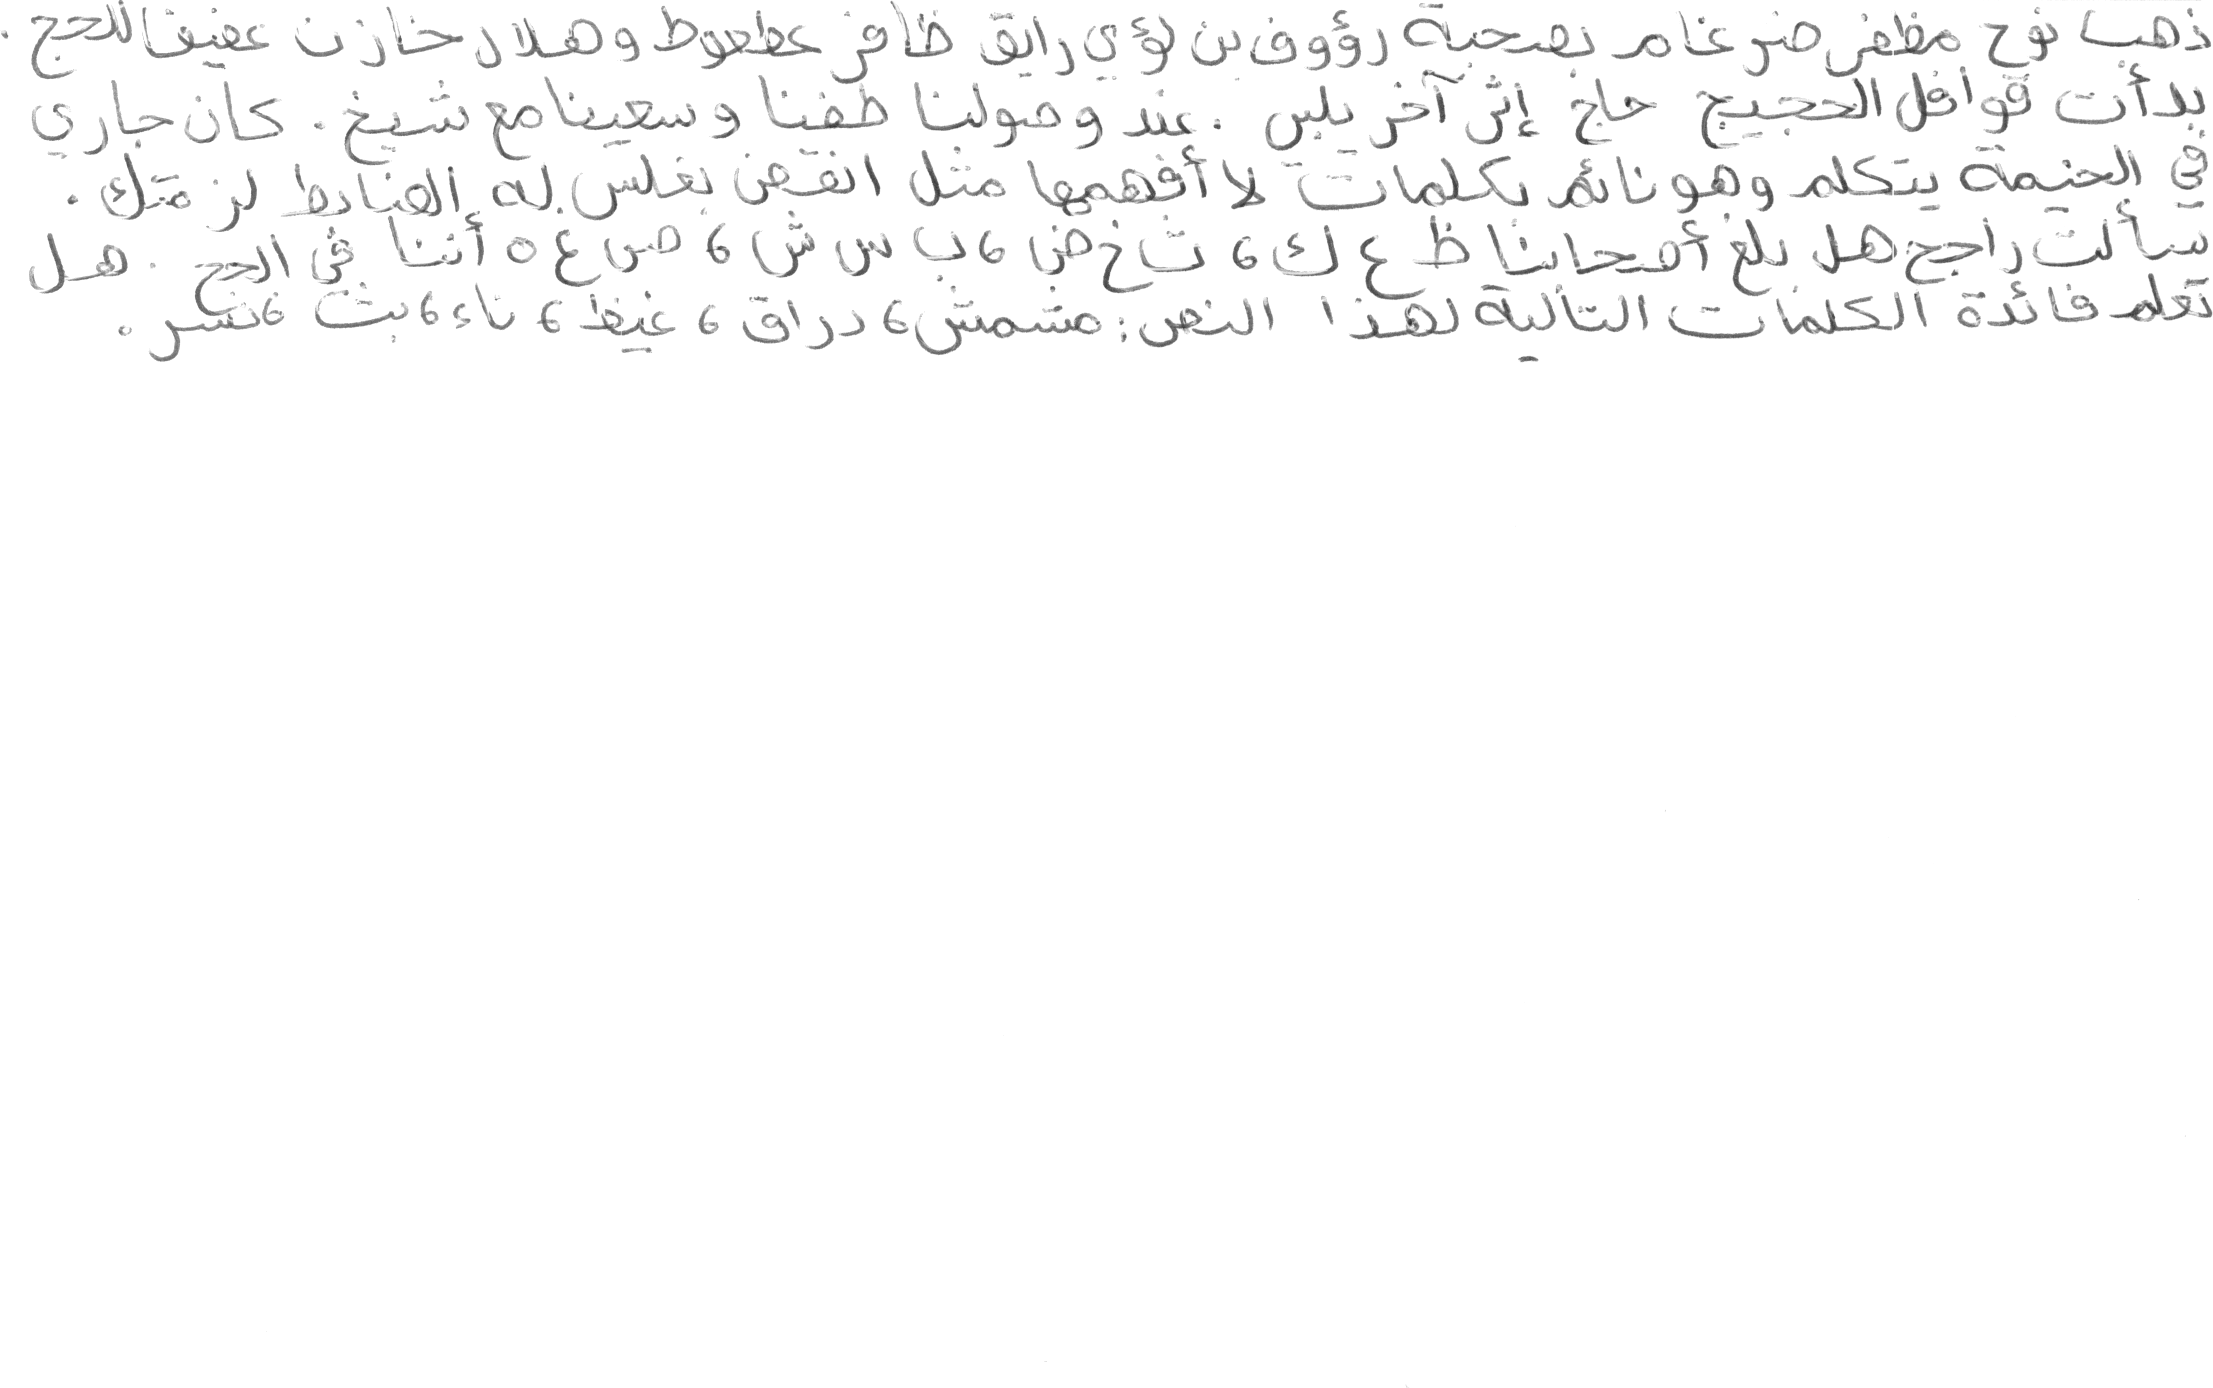 ذهب نوح مظفر ضرغام بصحبة رؤوف بن لؤي رايق ظافر عطعوط وهلال خازن عفيفا للحج .
بدأت قوافل الحجيج حاج إثر آخر يلبس . عند وصولنا طفنا وسعينا مع شيخ . كان جاري
في الخيمة يتكلم وهو نائم بكلمات لا أفهمها مثل انقض بغلس له الضابط لزمتك .
سألت راجح هل بلغ أصحابنا ظ ع ك ، ث خ ض ، ب س ش ، ص غ ه أننا في الحج . هل
تعلم فائدة الكلمات التالية لهذا النص : مشمش ، دراق ، غيظ ، ناء ، بث ، نسر .